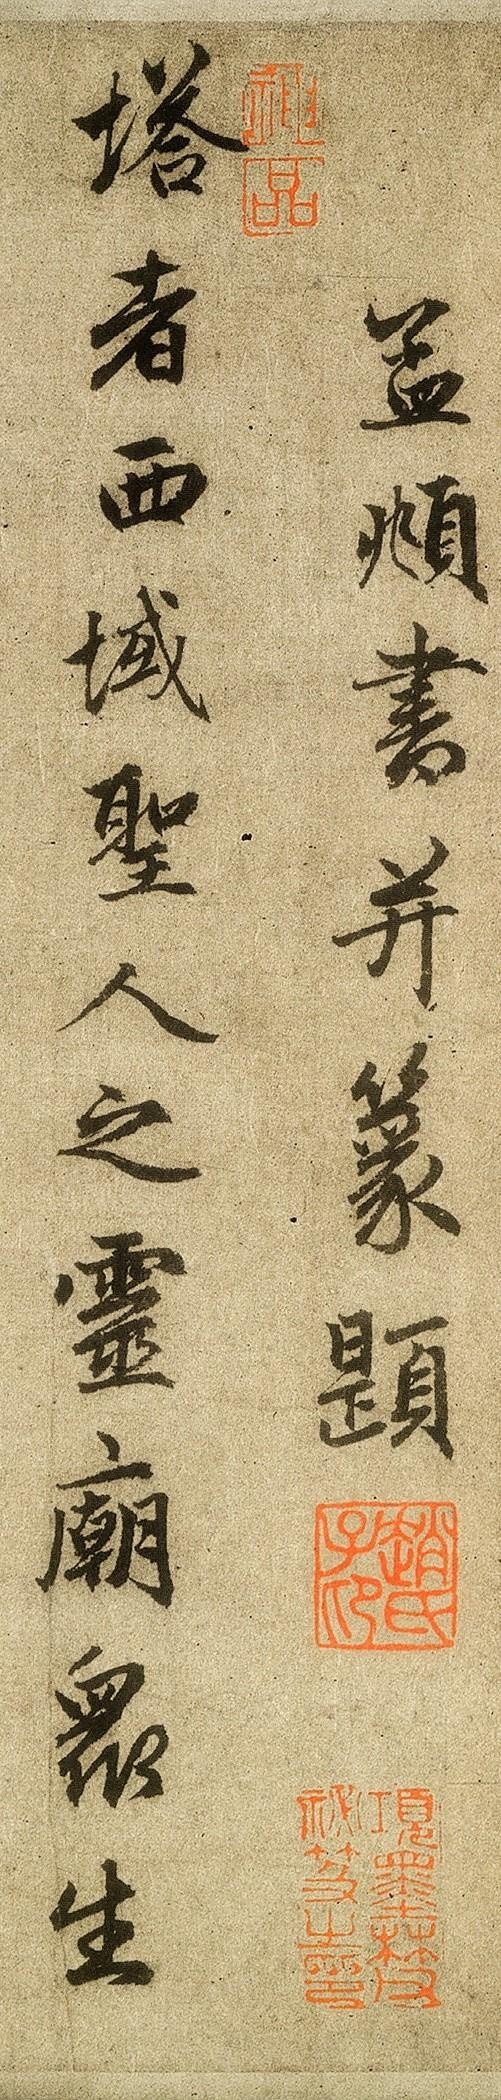 孟頫書并篆題
趙氏子昂
項墨林父
祕笈之印
神品
塔者西域聖人之靈廟衆生